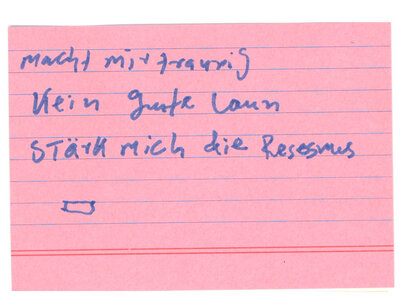 macht mir traurig
Kein gute Laun
STärk mich die Resesmus